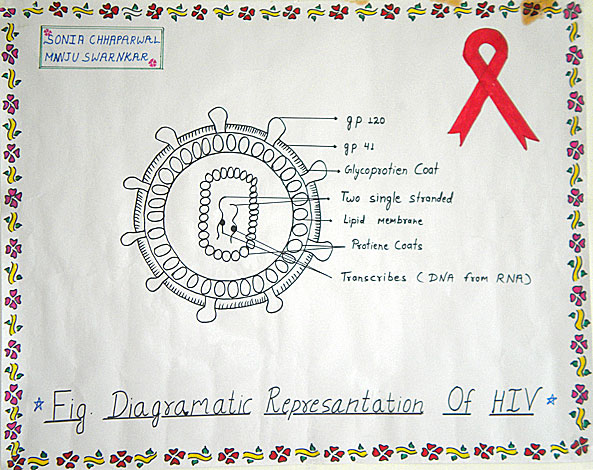 SONIA CHHAPARWAL
MNJU SWARNKAR
gp 120
gp 41
Glycoprotien Coat
Two single stranded
Lipid membrane
Protiene Coats
Transcribes (DNA from RNA)
Fig. Diagramatic Represantation Of HIV